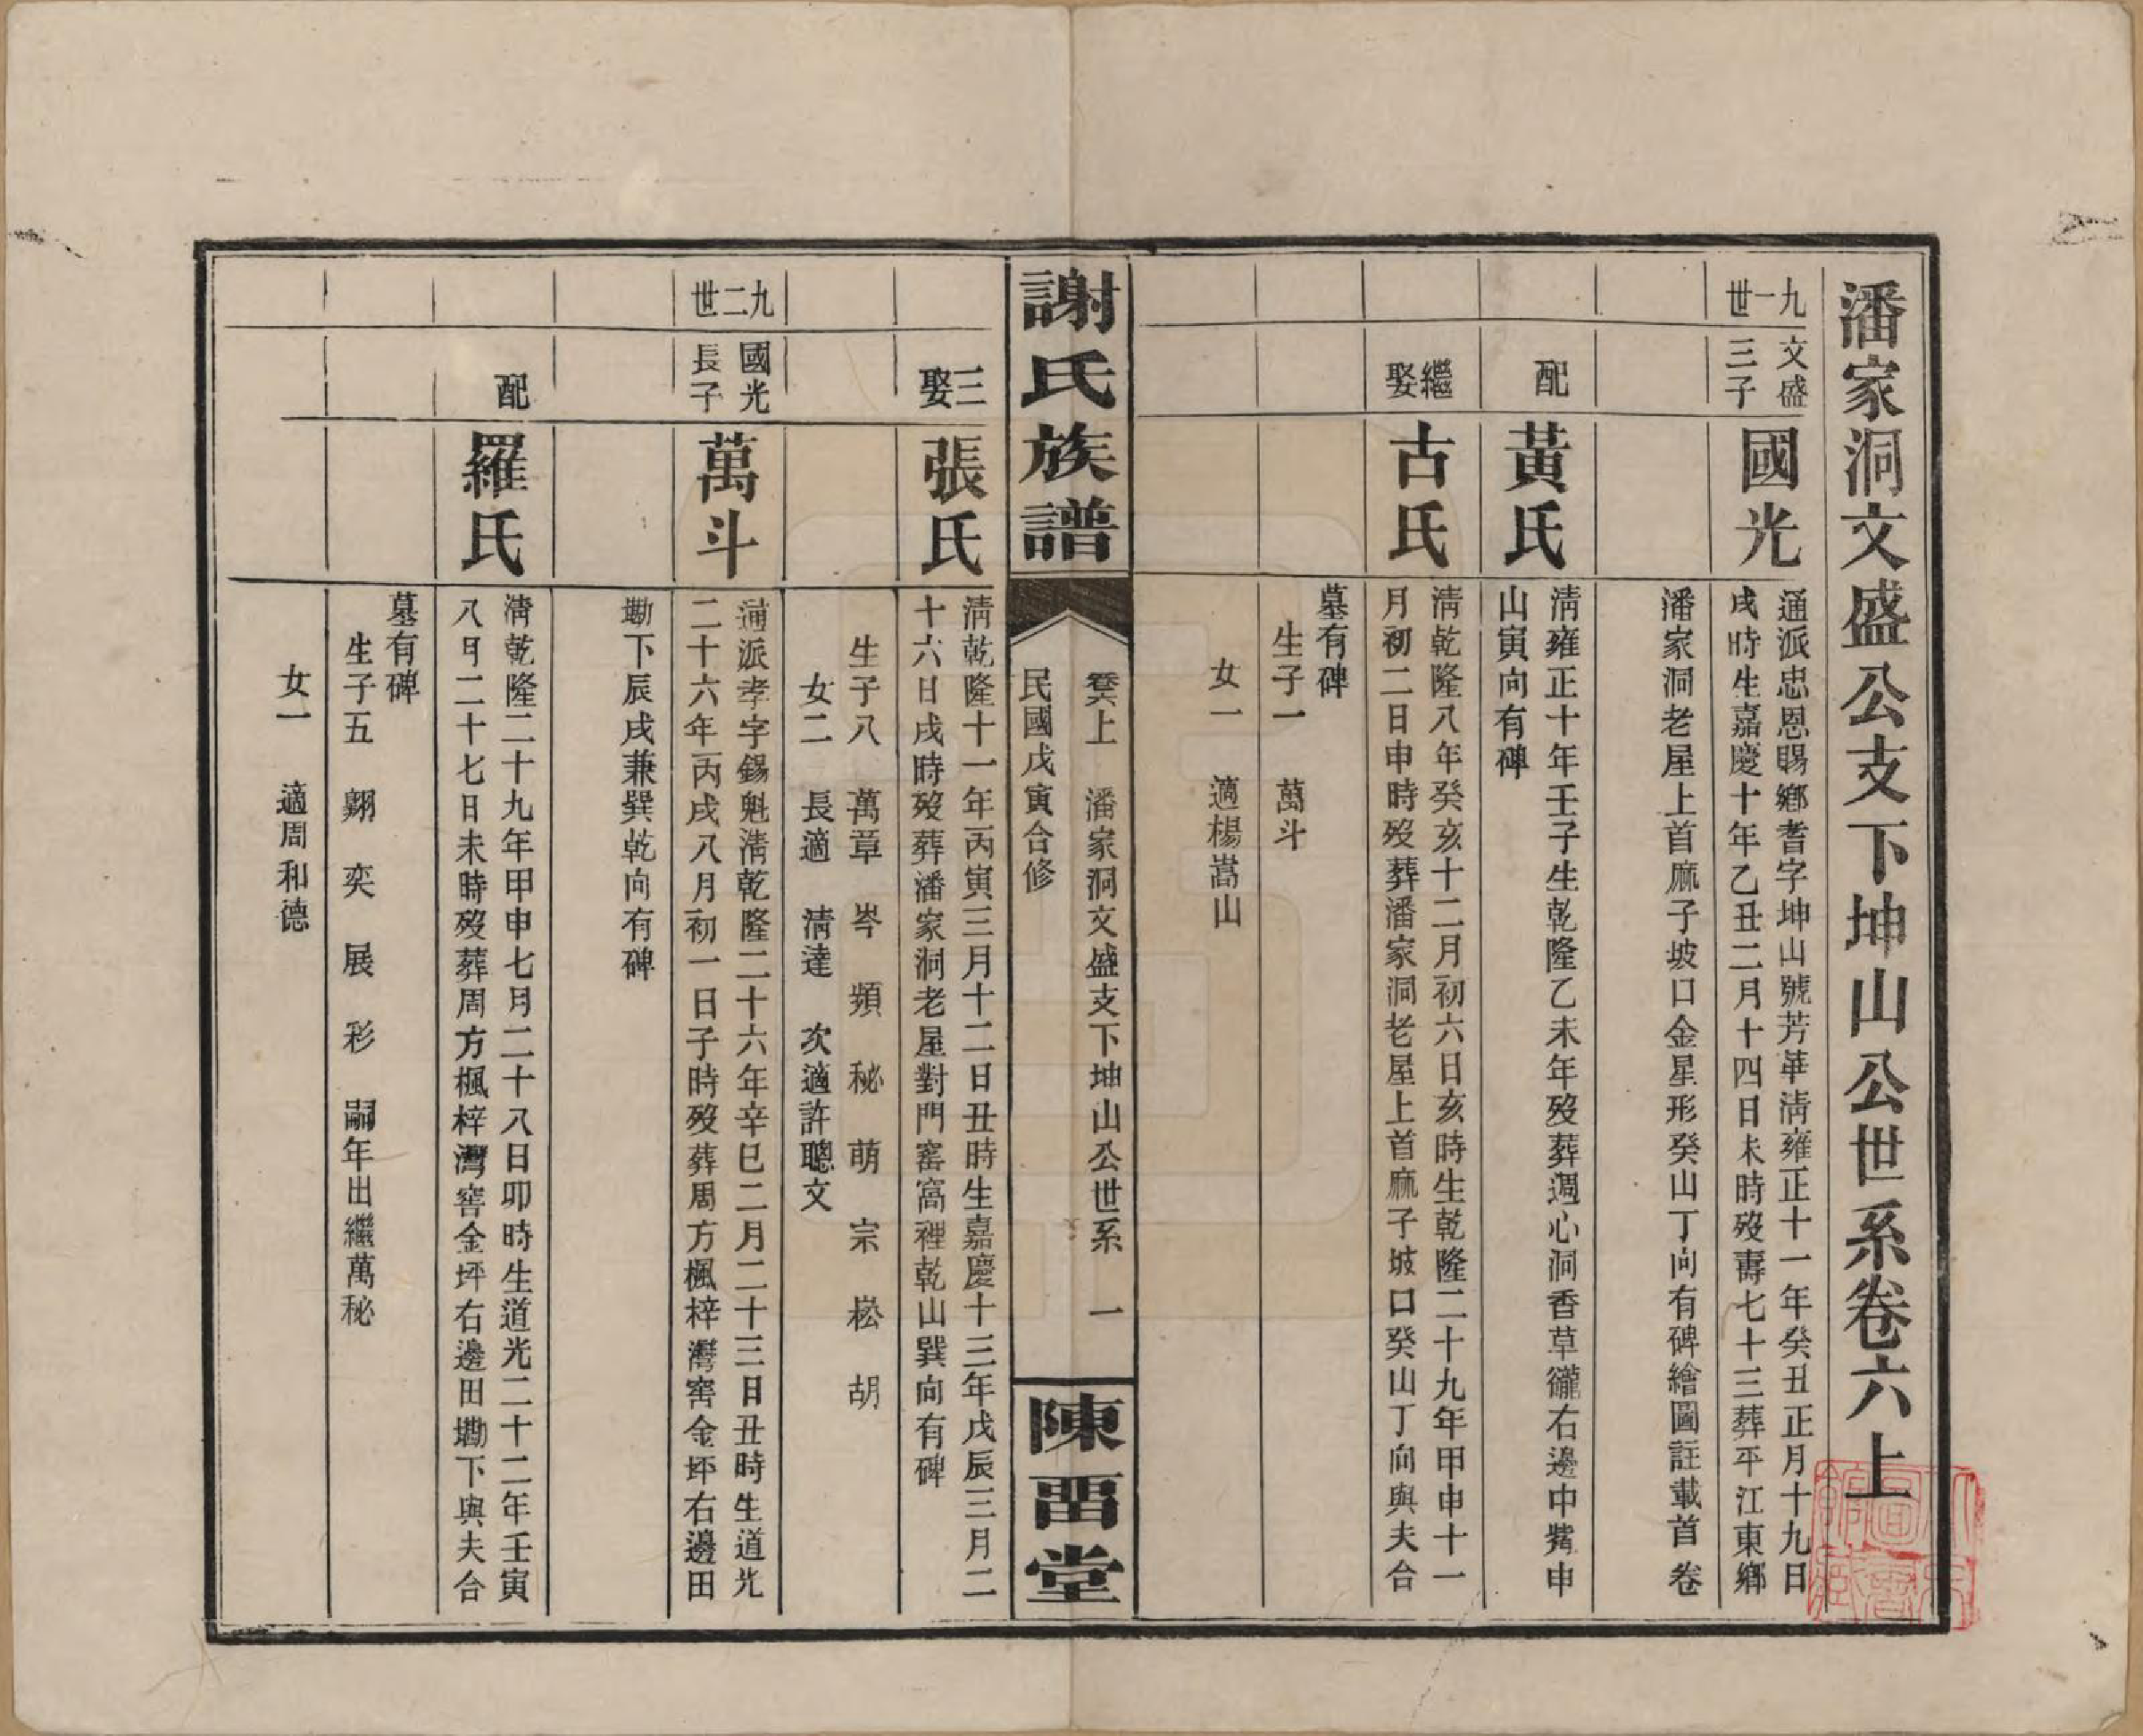 潘家洞文盛公支下坤山公世系卷六上
九一世
文盛
三子
國光
通派忠恩賜鄉耆字坤山號芳華淸雍正十一年癸丑正月十九日
戌時生嘉慶十年乙丑二月十四日未時歿壽七十三葬平江東鄉
潘家洞老屋上首麻子坡口金星形癸山丁向有碑繪圖註載首卷
配
黃氏
淸雍正十年壬子生乾隆乙未年歿葬週心洞香草龓右邊中嘴申
山寅向有碑
繼
娶
古氏
淸乾隆八年癸亥十二月初六日亥時生乾隆二十九年甲申十一
月初二日申時歿葬潘家洞老屋上首麻子坡口癸山丁向與夫合
墓有碑
生子一 萬斗
女一 適楊嵩山
謝氏族譜
卷六上 潘家洞文盛支下坤山公世系 一
民國戊寅合修
陳畱堂
三
娶
張氏
淸乾隆十一年丙寅三月十二日丑時生嘉慶十三年戊辰三月二
十六日戌時歿葬潘家洞老屋對門窰窩裡乾山巽向有碑
生子八 萬章 岑 頻 秘 萌 宗 崧 胡
女二 長適 淸達 次適許聰文
九二世
國光
長子
萬斗
通派孝字錫魁淸乾隆二十六年辛巳二月二十三日丑時生道光
二十六年丙戌八月初一日子時歿葬周方楓梓灣窖金坪右邊田
墈下辰戌兼巽乾向有碑
配
羅氏
淸乾隆二十九年甲申七月二十八日卯時生道光二十二年壬寅
八月二十七日未時歿葬周方楓梓灣窖金坪右邊田墈下與夫合
墓有碑
生子五 翺 奕 展 彩 嗣年出繼萬秘
女一 適周和德